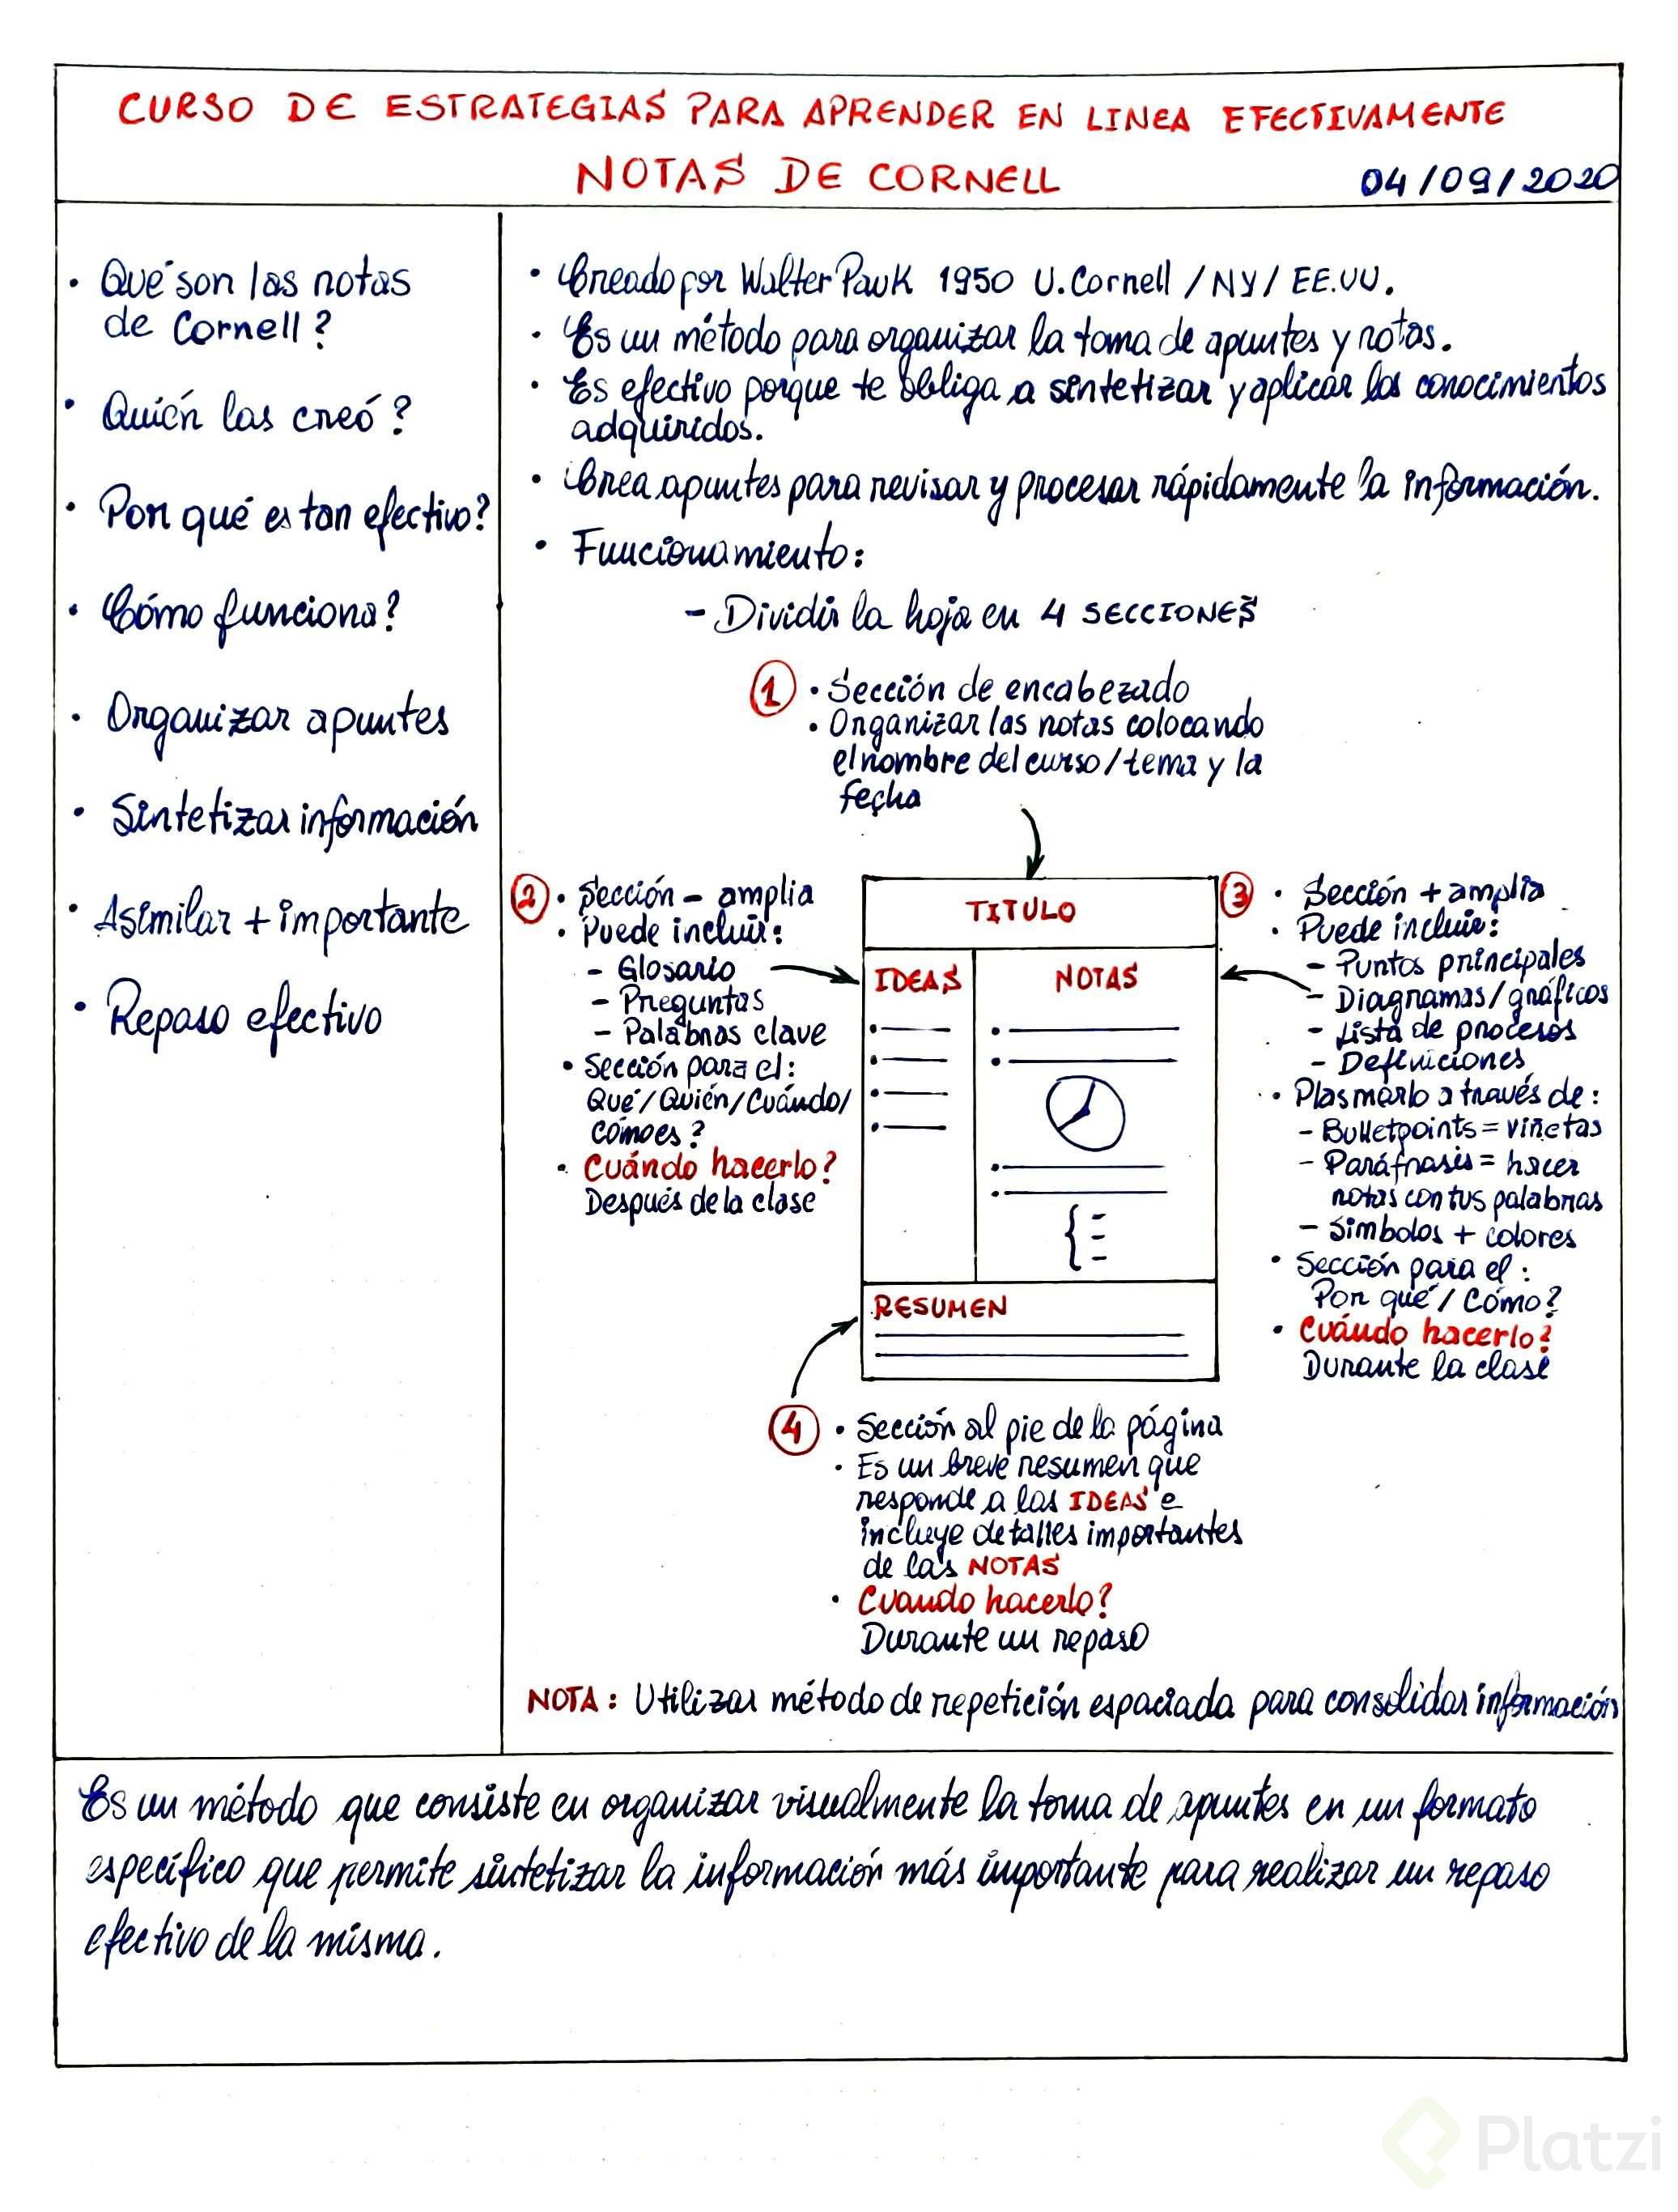 CURSO DE ESTRATEGIAS PARA APRENDER EN LINEA EFECTIVAMENTE
NOTAS DE CORNELL
04/09/2020
• Qué son las notas
de Cornell?
• Quién las creó?
• Por qué es tan efectivo?
• Cómo funciona?
• Organizar apuntes
• Sintetizar información
• Asimilar + importante
• Repaso efectivo
• Creado por Walter Pauk 1950 U. Cornell / NY / EE.UU.
• Es un método para organizar la toma de apuntes y notas.
• Es efectivo porque te obliga a sintetizar y aplicar los conocimientos
adquiridos.
• Crea apuntes para revisar y procesar rápidamente la información.
• Funcionamiento:
- Dividir la hoja en 4 SECCIONES
1 • Sección de encabezado
• Organizar las notas colocando
el nombre del curso/tema y la
fecha
2 • Sección - amplia
• Puede incluir:
- Glosario
- Preguntas
- Palabras clave
• Sección para el:
Qué/Quién/Cuándo/
Cómo es?
• Cuándo hacerlo?
Después de la clase
TITULO
IDEAS
NOTAS
RESUMEN
3 • Sección + amplia
• Puede incluir:
- Puntos principales
- Diagramas/gráficos
- Lista de procesos
- Definiciones
• Plasmarlo a través de:
- Bulletpoints = viñetas
- Paráfrasis = hacer
notas con tus palabras
- Simbolos + colores
• Sección para el:
Por qué / Cómo?
• Cuándo hacerlo?
Durante la clase
4 • Sección al pie de la página
• Es un breve resumen que
responde a las IDEAS e
incluye detalles importantes
de las NOTAS
• Cuando hacerlo?
Durante un repaso
NOTA: Utilizar método de repetición espaciada para consolidar información
Es un método que consiste en organizar visualmente la toma de apuntes en un formato
específico que permite sintetizar la información más importante para realizar un repaso
efectivo de la misma.
Platzi